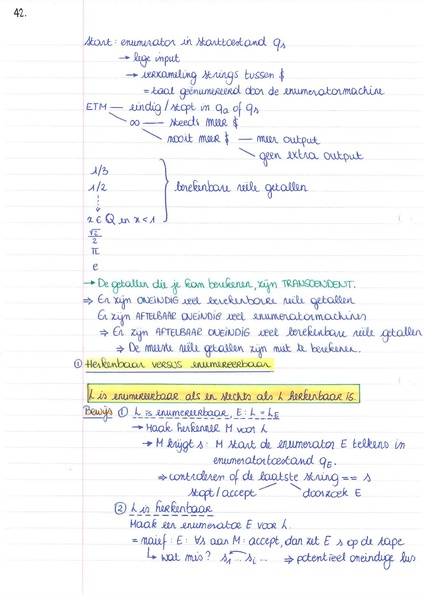 42.
start: enumerator in starttoestand qs
→ lege input
→ verzameling strings tussen $
= taal geënumereerd door de enumeratormachine
ETM — eindig/stopt in qa of qs
∞ — steeds meer $
nooit meer $ — meer output
geen extra output
1/3
1/2
berekenbare reële getallen
x ∈ Q en x < 1
√2/2
π
e
→ De getallen die je kan berekenen, zijn TRANSCENDENT.
⇒ Er zijn ONEINDIG veel berekenbare reële getallen
Er zijn AFTELBAAR ONEINDIG veel enumeratormachines
⇒ Er zijn AFTELBAAR ONEINDIG veel berekenbare reële getallen
⇒ De meeste reële getallen zijn niet te berekenen.
① Herkenbaar versus enumereerbaar
L is enumereerbaar als en slechts als L herkenbaar is.
Bewijs ① L is enumereerbaar, E: L = LE
→ Maak herkenner M voor L
→ M krijgt s: M start de enumerator E telkens in
enumeratortoestand qE.
⇒ controleren of de laatste string == s
stopt/accept doorzoek E
② L is herkenbaar
Maak een enumerator E voor L.
= naïef: E: ∀s aan M: accept, dan zet E s op de tape
↳ wat mis? s1... si... ⇒ potentieel oneindige lus